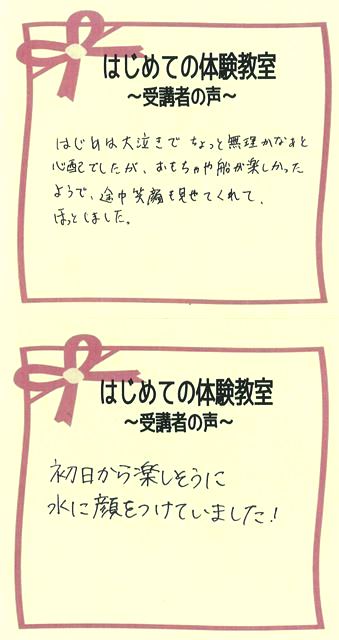 はじめての体験教室
～受講者の声～
はじめは大泣きでちょっと無理かなぁと
心配でしたが、おもちゃや船が楽しかった
ようで、途中笑顔も見せてくれて、
ほっとしました。
はじめての体験教室
～受講者の声～
初日から楽しそうに
水に顔をつけていました!